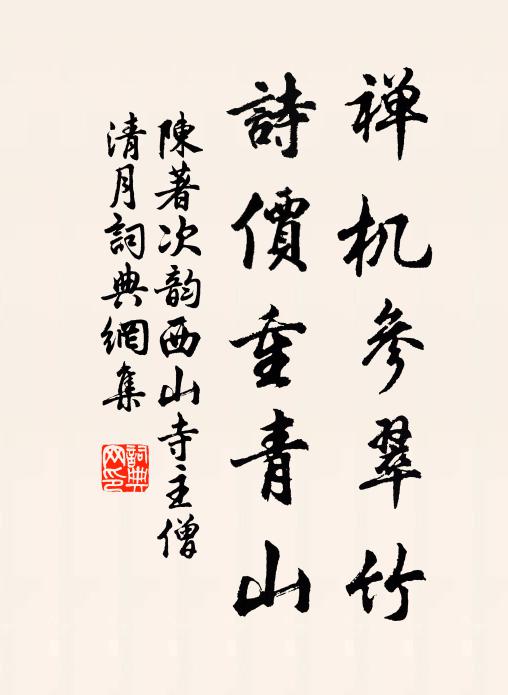 禅机參翠竹
詩價重青山
陳著次韵西山寺主僧
清月詞典網集
詞典
网印